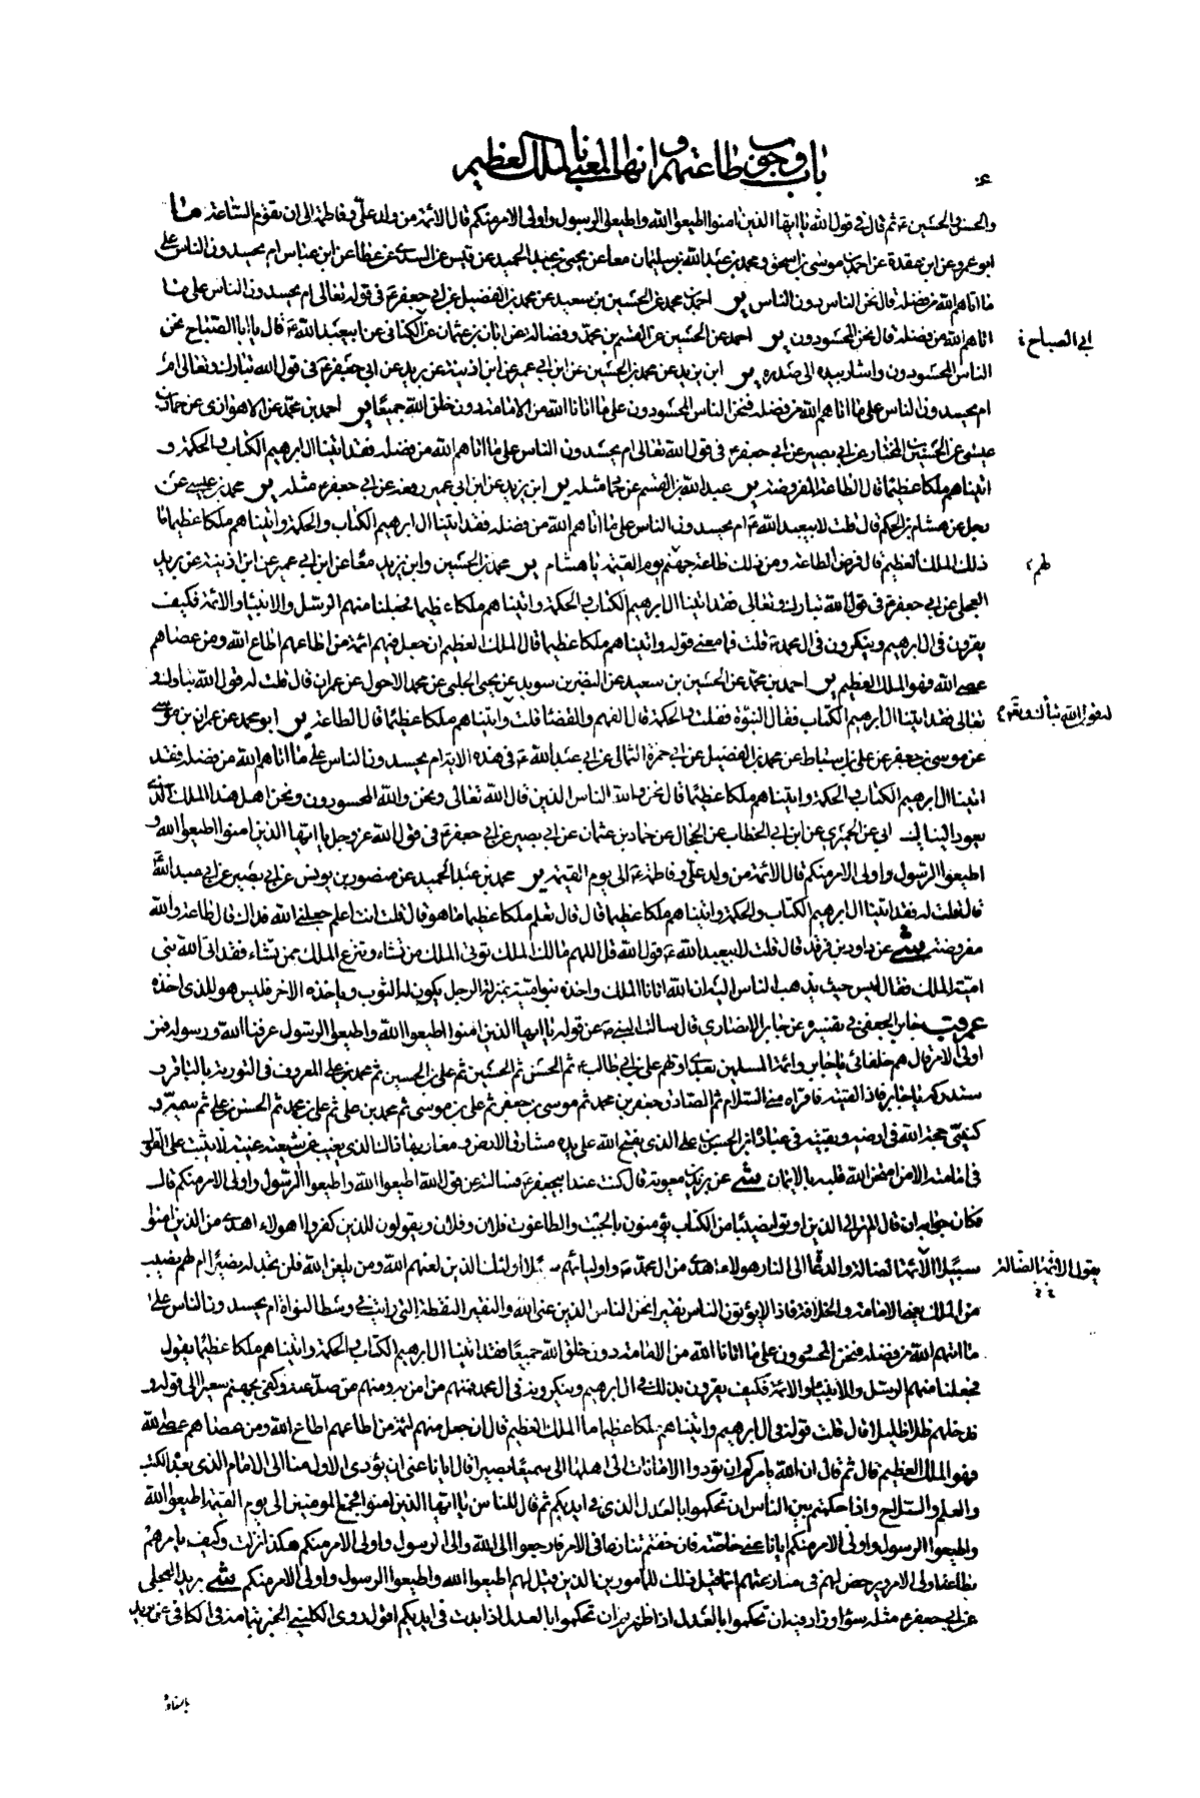 باب وجوب طاعتهم وانها المعني بالملك العظيم
والحسن والحسين ع ثم قال في قول الله يا ايها الذين امنوا اطيعوا الله واطيعوا الرسول واولى الامر منكم قال الائمة من ولد علي وفاطمة الى ان تقوم الساعة ما
ابو عمرو عن ابن عقدة عن احمد بن موسى بن اسحق ومحمد بن عبد الله بن سليمان معا عن يحيى بن عبد الحميد عن قيس عن السدي عن عطا عن ابن عباس ام يحسدون الناس على
ما اتاهم الله من فضله قال نحن الناس دون الناس ير احمد بن محمد عن الحسين بن سعيد عن محمد بن الفضيل عن ابي جعفر ع في قوله تعالى ام يحسدون الناس على ما
اتاهم الله من فضله قال نحن المحسودون ير احمد عن الحسين عن القسم بن محمد وفضالة عن ابان بن عثمان عن الكناني عن ابيعبد الله ع قال يا ابا الصباح نحن
ابي الصباح
الناس المحسودون واشار بيده الى صدره ير ابن يزيد عن محمد بن الحسين عن ابن ابي عمير عن ابن اذينة عن بريد عن ابي جعفر ع في قول الله تبارك وتعالى ام
ام يحسدون الناس على ما اتاهم الله من فضله فنحن الناس المحسودون على ما اتانا الله من الامامة دون خلق الله جميعا ير احمد بن محمد عن الاهوازي عن حماد بن
عيسى عن الحسين بن المختار عن ابي بصير عن ابي جعفر ع في قول الله تعالى ام يحسدون الناس على ما اتاهم الله من فضله فقد اتينا ال ابرهيم الكتاب والحكمة و
اتيناهم ملكا عظيما قال الطاعة المفروضة ير عبد الله بن القسم عن حماد مثله ير ابن يزيد عن ابن ابي عمير رفعه عن ابي جعفر ع مثله ير محمد بن عيسى عن
رجل عن هشام بن الحكم قال قلت لابيعبد الله ع ام يحسدون الناس على ما اتاهم الله من فضله فقد اتينا ال ابرهيم الكتاب والحكمة واتيناهم ملكا عظيما ما
ذلك الملك العظيم قال فرض الطاعة ومن ذلك طاعة جهنم يوم القيمة يا هشام ير محمد بن الحسين وابن يزيد معا عن ابن ابي عمير عن ابن اذينة عن بريد
لهم
العجلي عن ابي جعفر ع في قول الله تبارك وتعالى فقد اتينا ال ابرهيم الكتاب والحكمة واتيناهم ملكا عظيما فجعلنا منهم الرسل والانبياء والائمة فكيف
يقرون في ال ابرهيم وينكرون في ال محمد ص قلت فما معنى قوله واتيناهم ملكا عظيما قال الملك العظيم ان جعل فيهم ائمة من اطاعهم اطاع الله ومن عصاهم
عصى الله فهو الملك العظيم ير احمد بن محمد عن الحسين بن سعيد عن النضر بن سويد عن يحيى الحلبي عن محمد الاحول عن عمران قال قلت له قول الله تبارك و
تعالى فقد اتينا ال ابرهيم الكتاب فقال النبوة فقلت والحكمة قال الفهم والقضا قلت واتيناهم ملكا عظيما قال الطاعة ير ابو محمد عن عمران بن موسى
عن موسى بن جعفر عن علي بن اسباط عن محمد بن الفضيل عن ابي حمزة الثمالي عن ابي عبد الله ع في هذه الاية ام يحسدون الناس على ما اتاهم الله من فضله فقد
اتينا ال ابرهيم الكتاب والحكمة واتيناهم ملكا عظيما قال نحن والله الناس الذين قال الله تعالى ونحن والله المحسودون ونحن اهل هذا الملك الذي
يعود الينا ك ابي عن الحميري عن ابن ابي الخطاب عن الحجال عن حماد بن عثمان عن ابي بصير عن ابي جعفر ع في قول الله عز وجل يا ايها الذين امنوا اطيعوا الله و
اطيعوا الرسول واولى الامر منكم قال الائمة من ولد علي وفاطمة ع الى يوم القيمة ير محمد بن عبد الحميد عن منصور بن يونس عن ابي بصير عن ابي عبد الله ع
قال قلت له فقد اتينا ال ابرهيم الكتاب والحكمة واتيناهم ملكا عظيما قال قال تعلم ملكا عظيما ما هو قال قلت انت اعلم جعلني الله فداك قال طاعة والله
مفروضة شي عن داود بن فرقد قال قلت لابيعبد الله ع قول الله قل اللهم مالك الملك تؤتى الملك من تشاء وتنزع الملك ممن تشاء فقد اتى الله بني
امية الملك فقال ليس حيث يذهب الناس اليه ان الله اتانا الملك واخذه بنو امية بمنزلة الرجل يكون له الثوب وياخذه الاخر فليس هو للذي اخذه
جابر الجعفي في تفسيره عن جابر الانصاري قال سالت النبي ص عن قوله يا ايها الذين امنوا اطيعوا الله واطيعوا الرسول عرفنا الله ورسوله فمن
اولى الامر قال هم خلفائي يا جابر وائمة المسلمين بعدي اولهم علي بن ابي طالب ع ثم الحسن ثم الحسين ثم علي بن الحسين ثم محمد بن علي المعروف في التورية بالباقر و
ستدركه يا جابر فاذا لقيته فاقراه مني السلام ثم الصادق جعفر بن محمد ثم موسى بن جعفر ثم علي بن موسى ثم محمد بن علي ثم علي بن محمد ثم الحسن بن علي ثم سميي و
كنيتي حجة الله في ارضه وبقيته في عباده ابن الحسن بن علي الذي يفتح الله على يده مشارق الارض ومغاربها ذاك الذي يغيب عن شيعته غيبة لا يثبت على القول
في امامته الا من امتحن الله قلبه بالايمان شي عن بريد بن معوية قال كنت عند ابيجعفر ع فسالته عن قول الله اطيعوا الله واطيعوا الرسول واولى الامر منكم قال
فكان جوابه ان قال الم تر الى الذين اوتوا نصيبا من الكتاب يؤمنون بالجبت والطاغوت فلان وفلان ويقولون للذين كفروا هولاء اهدى من الذين امنوا
سبيلا الائمة الضالة والدعاة الى النار هولاء اهدى من ال محمد ص واوليائهم سبيلا اولئك الذين لعنهم الله ومن يلعن الله فلن تجد له نصيرا ام لهم نصيب
يقول الائمة الضالة
من الملك يعني الامامة والخلافة فاذا لايؤتون الناس نقيرا نحن الناس الذين عنى الله والنقير النقطة التي رايت في وسط النواة ام يحسدون الناس على
ما اتيهم الله من فضله فنحن المحسودون على ما اتانا الله من الامامة دون خلق الله جميعا فقد اتينا ال ابرهيم الكتاب والحكمة واتيناهم ملكا عظيما يقول
فجعلنا منهم الرسل والانبياء والائمة فكيف يقرون بذلك في ال ابرهيم وينكرونه في ال محمد فمنهم من امن به ومنهم من صد عنه وكفى بجهنم سعيرا الى قوله و
ندخلهم ظلا ظليلا قال قلت قوله في ال ابرهيم واتيناهم ملكا عظيما ما الملك العظيم قال ان جعل منهم ائمة من اطاعهم اطاع الله ومن عصاهم عصى الله
فهو الملك العظيم قال ثم قال ان الله يامركم ان تؤدوا الامانات الى اهلها الى سميعا بصيرا قال ايانا عنى ان يؤدى الاول منا الى الامام الذي بعده الكتب
والعلم والسلاح واذا حكمتم بين الناس ان تحكموا بالعدل الذي في ايديكم ثم قال للناس يا ايها الذين امنوا فجمع المؤمنين الى يوم القيمة اطيعوا الله
واطيعوا الرسول واولى الامر منكم ايانا عنى خاصة فان خفتم تنازعا في الامر فارجعوا الى الله والى الرسول واولى الامر منكم هكذا نزلت وكيف يامرهم
بطاعة اولى الامر ويرخص لهم في منازعتهم انما قيل ذلك للمامورين الذين قيل لهم اطيعوا الله واطيعوا الرسول واولى الامر منكم شي بريد العجلي
عن ابي جعفر ع مثله سواء وزاد فيه ان تحكموا بالعدل اذا ظهرتم ان تحكموا بالعدل اذا بدت في ايديكم اقول روى الكليني الخبر بتمامه في الكافي عن بريد